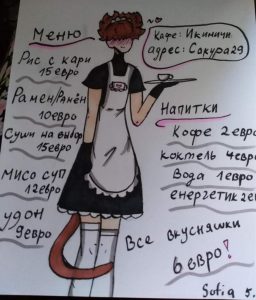 Меню
Рис с кари
15 евро
Рамен/Рамён
10евро
Суши на выбор
15евро
мисо суп
12евро
удон
9евро
Кафе: Икиничи
адрес: Сакура 29
Напитки
Кофе 2евро
коктель 4евро
Вода 1евро
енергетик 2евро
Все вкусняшки
6 евро!
Sofia 5.